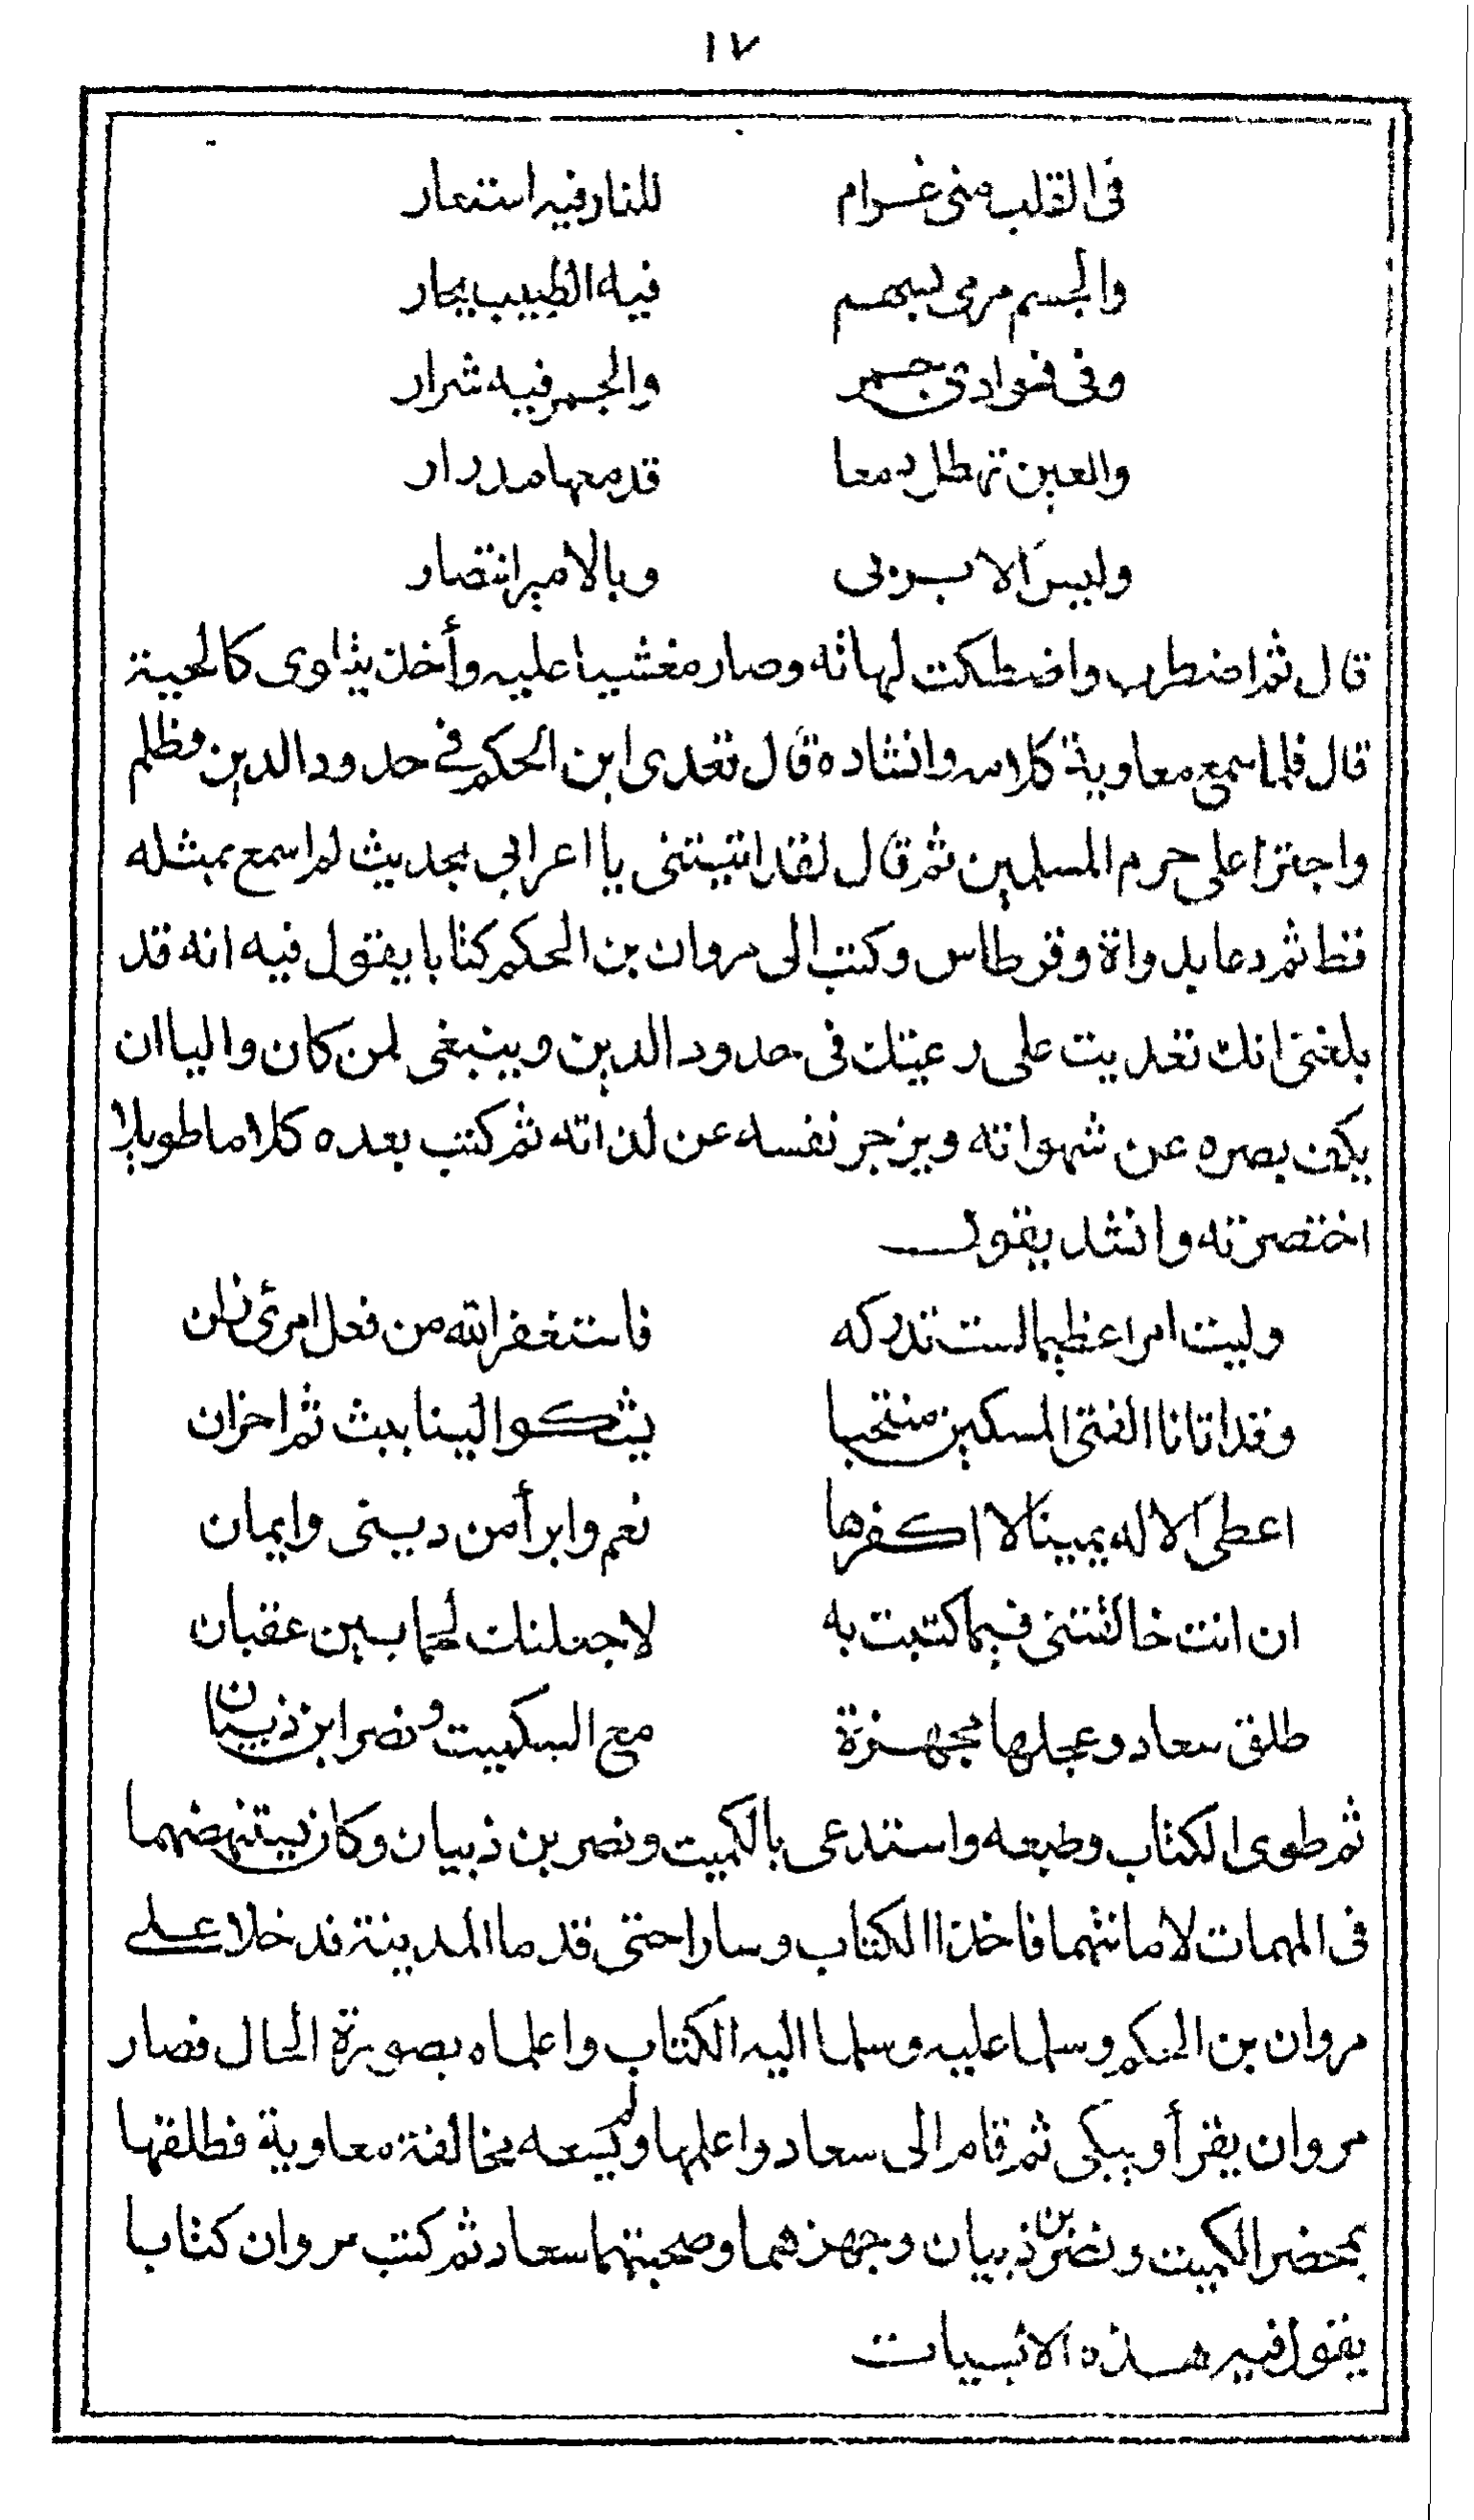 ١٧
فى القلب منى غرام للنار فيه استعار
والجسم مرمى بسهم فيه الطبيب يحار
وفى فوادى جمر والجمر فيه شرار
والعين تهطل دمعا قدمعها مدرار
وليس الا بربى وبالامير انتصار
قال ثم اضطرب واصطكت لهاته وصار مغشيا عليه وأخذ يتلوى كالحية
قال فلما سمع معاوية كلامه وانشاده قال تعدى ابن الحكم في حدود الدين وظلم
واجترا على حرم المسلمين ثم قال لقد اتيتنى يا اعرابي بحديث لم اسمع بمثله
قط ثم دعا بدواة وقرطاس وكتب الى مروان بن الحكم كتابا يقول فيه انه قد
بلغنى انك تعديت على رعيتك فى حدود الدين وينبغى لمن كان واليا ان
يكف بصره عن شهواته ويزجر نفسه عن لذاته ثم كتب بعده كلاما طويلا
اختصرته وانشد يقول
وليت امرا عظيما لست تدركه فاستغفر الله من فعل امرئ زان
وقد اتانا الفتى المسكين منتحبا يشكو الينا ببث ثم احزان
اعطى الاله يمينا لا اكفرها نعم وابرأ من دينى وايمان
ان انت خالفتنى فيما كتبت به لاجعلنك لحما بين عقبان
طلق سعاد وعجلها مجهزة مع الكميت ونصر ابن ذبيان
ثم طوى الكتاب وطبعه واستدعى بالكميت ونصر بن ذبيان وكان يستنهضهما
فى المهمات لامانتهما فاخذا الكتاب وسارا حتى قدما المدينة فدخلا على
مروان بن الحكم وسلما عليه وسلما اليه الكتاب واعلماه بصورة الحال فصار
مروان يقرأ ويبكى ثم قام الى سعاد واعلمها ولم يسعه مخالفة معاوية فطلقها
بمحضر الكميت ونصر بن ذبيان وجهزهما وصحبتهما سعاد ثم كتب مروان كتابا
يقول فيه هذه الابيات